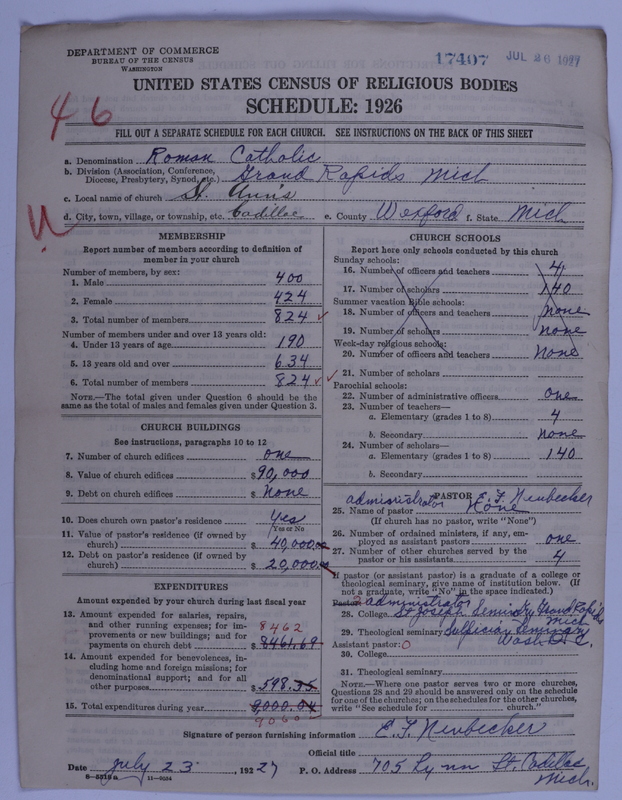 DEPARTMENT OF COMMERCE
BUREAU OF THE CENSUS
WASHINGTON
17407 JUL 26 1927
UNITED STATES CENSUS OF RELIGIOUS BODIES
SCHEDULE: 1926
46
FILL OUT A SEPARATE SCHEDULE FOR EACH CHURCH. SEE INSTRUCTIONS ON THE BACK OF THIS SHEET
a. Denomination Roman Catholic
b. Division (Association, Conference, Diocese, Presbytery, Synod, etc.) Grand Rapids Mich
c. Local name of church St. Ann's
d. City, town, village, or township, etc. Cadillac e. County Wexford f. State Mich
MEMBERSHIP
Report number of members according to definition of
member in your church
Number of members, by sex:
1. Male 400
2. Female 424
3. Total number of members 824
Number of members under and over 13 years old:
4. Under 13 years of age 190
5. 13 years old and over 634
6. Total number of members 824
NOTE.—The total given under Question 6 should be
same as the total of males and females given under Question 3.
CHURCH BUILDINGS
See instructions, paragraphs 10 to 12
7. Number of church edifices one
8. Value of church edifices $90,000
9. Debt on church edifices $ None
10. Does church own pastor's residence Yes
Yes or No
11. Value of pastor's residence (if owned by
church) $ 40,000.00
12. Debt on pastor's residence (if owned by
church) $ 20,000.00
EXPENDITURES
Amount expended by your church during last fiscal year
13. Amount expended for salaries, repairs,
and other running expenses; for im-
provements or new buildings; and for
payments on church debt $ 8461.69
8462
14. Amount expended for benevolences, in-
cluding home and foreign missions; for
denominational support; and for all
other purposes $ 598.35
15. Total expenditures during year 9,000.04
9060
CHURCH SCHOOLS
Report here only schools conducted by this church
Sunday schools:
16. Number of officers and teachers 4
17. Number of scholars 140
Summer vacation Bible schools:
18. Number of officers and teachers None
19. Number of scholars None
Week-day religious schools:
20. Number of officers and teachers None
21. Number of scholars
Parochial schools:
22. Number of administrative officers one
23. Number of teachers—
a. Elementary (grades 1 to 8) 4
b. Secondary None
24. Number of scholars—
a. Elementary (grades 1 to 8) 140
b. Secondary
PASTOR
administrator E. F. Neubecker
25. Name of pastor None
(If church has no pastor, write "None")
26. Number of ordained ministers, if any, em-
ployed as assistant pastors one
27. Number of other churches served by the
pastor or his assistants 4
If pastor (or assistant pastor) is a graduate of a college or
theological seminary, give name of institution below. (If
not a graduate, write "No" in the space indicated.)
Pastor: administrator
28. College St Joseph Seminary Grand Rapids Mich
29. Theological seminary Sulpician Seminary Wash. D. C.
Assistant pastor: 0
30. College
31. Theological seminary
NOTE.—Where one pastor serves two or more churches,
Questions 28 and 29 should be answered only on the schedule
for one of the churches; on the schedules for the other churches,
write "See schedule for church."
Signature of person furnishing information E. F. Neubecker
Official title
Date July 23 192 27 P. O. Address 705 Lynn St. Cadillac Mich.
11—9034